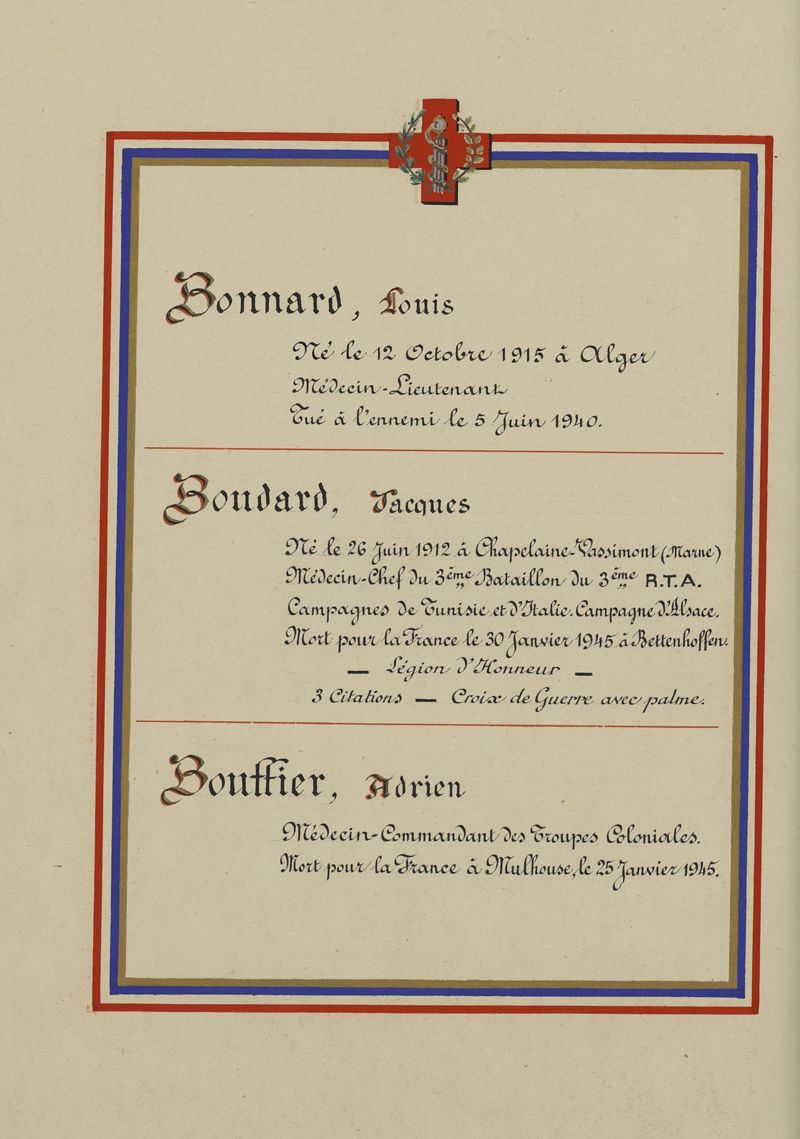 Bonnard, Louis
Né le 12 Octobre 1915 à Alger
Médecin-Lieutenant
Tué à l'ennemi le 5 Juin 1940.
Boudard, Jacques
Né le 26 Juin 1912 à Chapelaine-Vassimont (Marne)
Médecin-Chef du 3ème Bataillon du 3ème R.T.A.
Campagnes de Tunisie et d'Italie. Campagne d'Alsace.
Mort pour la France le 30 Janvier 1945 à Bettenhoffen.
— Légion d'Honneur —
3 Citations — Croix de Guerre avec palme.
Bouffier, Adrien
Médecin-Commandant des Troupes Coloniales.
Mort pour la France à Mulhouse, le 25 Janvier 1945.